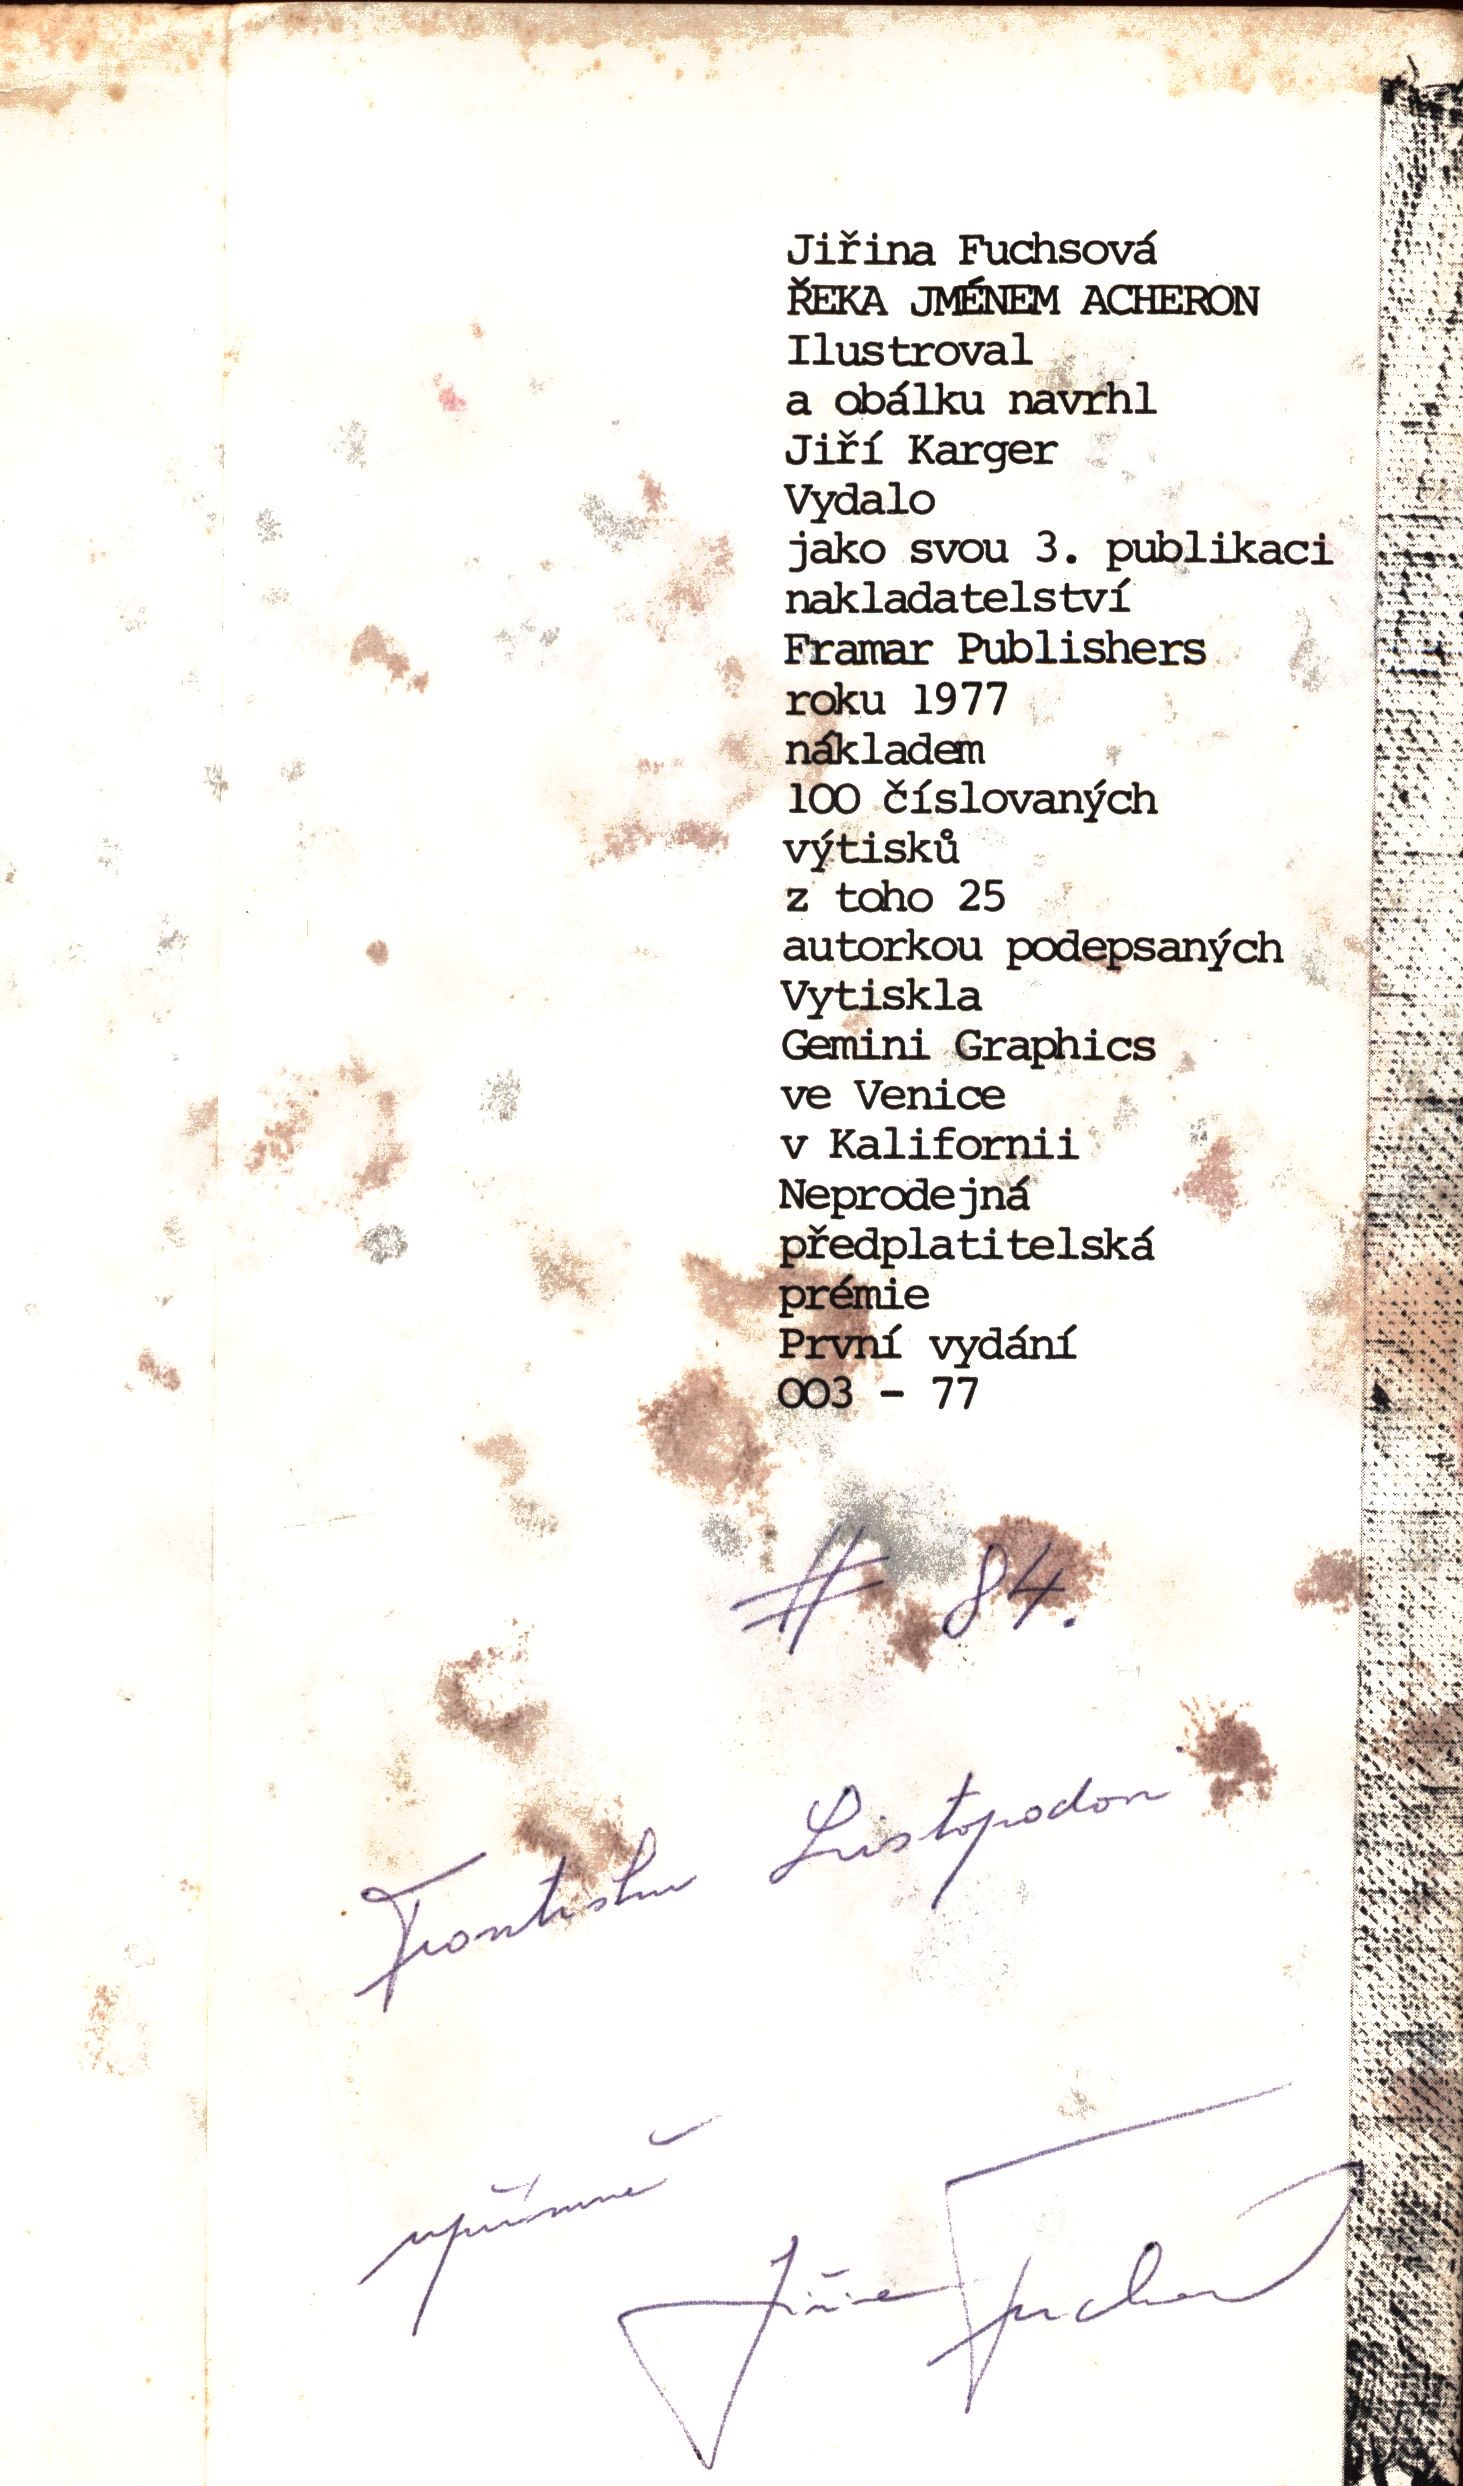 Jiřina Fuchsová
ŘEKA JMÉNEM ACHERON
Ilustroval
a obálku navrhl
Jiří Karger
Vydalo
jako svou 3. publikaci
nakladatelství
Framar Publishers
roku 1977
nákladem
100 číslovaných
výtisků
z toho 25
autorkou podepsaných
Vytiskla
Gemini Graphics
ve Venice
v Kalifornii
Neprodejná
předplatitelská
prémie
První vydání
003 - 77
# 84.
upřímně